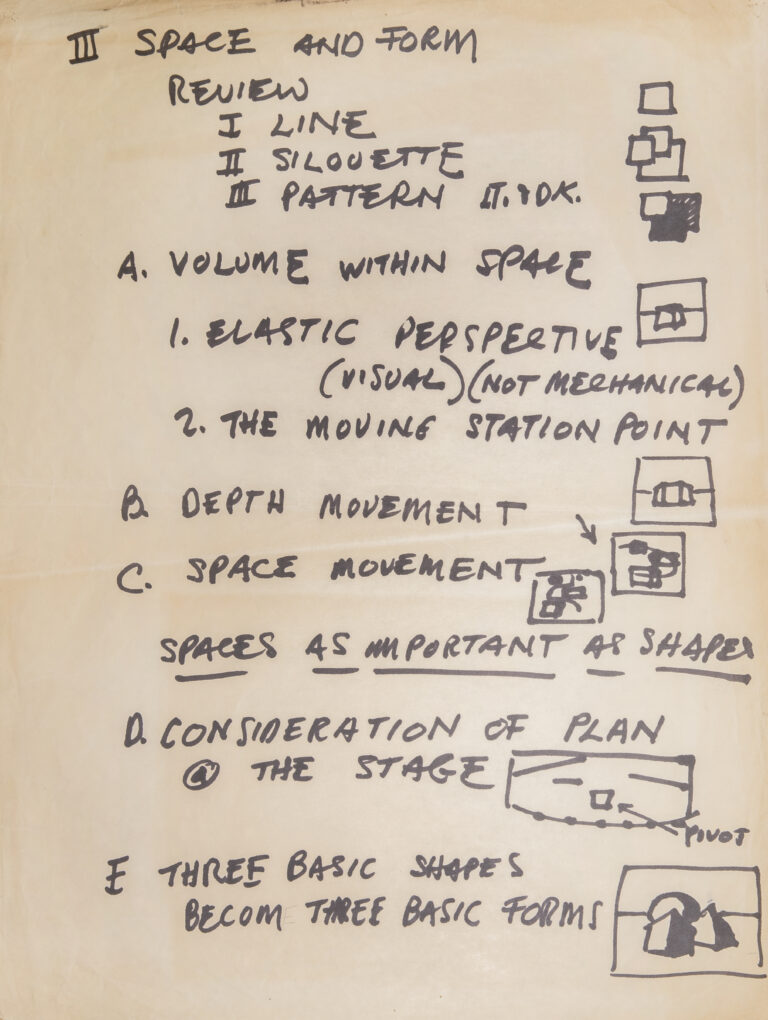 III SPACE AND FORM
REVIEW
I LINE
II SILOUETTE
III PATTERN LT. & DK.
A. VOLUME WITHIN SPACE
1. ELASTIC PERSPECTIVE
(VISUAL) (NOT MECHANICAL)
2. THE MOVING STATION POINT
B. DEPTH MOVEMENT
C. SPACE MOVEMENT
SPACES AS IMPORTANT AS SHAPES
D. CONSIDERATION OF PLAN
@ THE STAGE
PIVOT
E THREE BASIC SHAPES
BECOM THREE BASIC FORMS